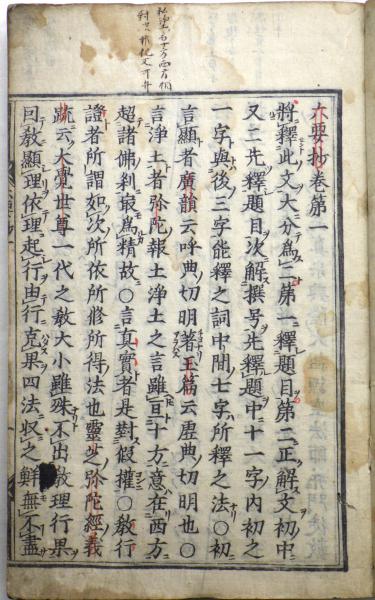 六要抄巻第一
將釋此文大分爲二第一釋題目第二正解文初中
又二先釋題目次解撰号先釋題中十一字內初之
一字與後三字能釋之詞中間七字所釋之法〇初
言顯者廣韻云呼典切明著玉篇云虛典切明也〇
言淨土者弥陀報土淨土之言雖亘十方意在西方
超諸佛刹最爲精故〇言真實者是對假權〇敎行
證者所謂如次所依所修所得法也靈芝弥陀經義
䟽云大覺世尊一代之敎大小雖殊不出敎理行果
因敎顯理依理起行由行克果四法収之鮮無不盡